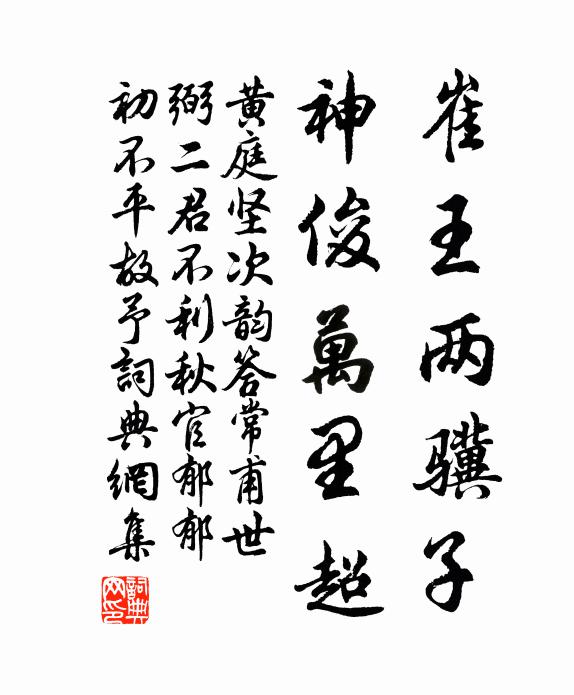 崔王两骥子
神俊萬里超
黄庭坚次韵答常甫世
弼二君不利秋官郁郁
初不平故予詞典網集
詞典网印